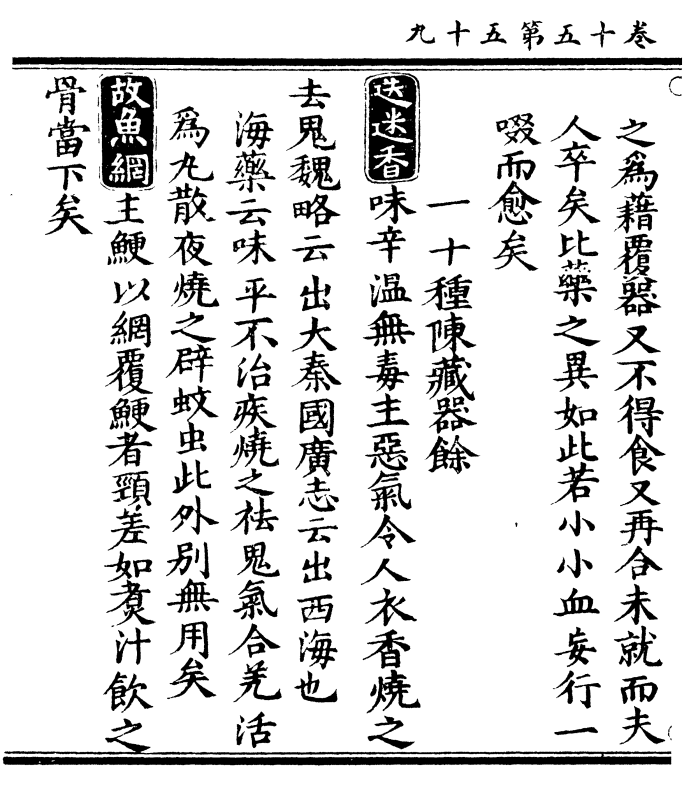 卷十五第五十九
之為藉覆器又不得食又再合未就而夫
人卒矣比藥之異如此若小小血妄行一
啜而愈矣
一十種陳藏器餘
迭迷香味辛溫無毒主惡氣令人衣香燒之
去鬼魏略云出大秦國廣志云出西海也
海藥云味平不治疾燒之祛鬼氣合羌活
為丸散夜燒之辟蚊虫此外別無用矣
故魚網主鯁以網覆鯁者頸差如煑汁飲之
骨當下矣